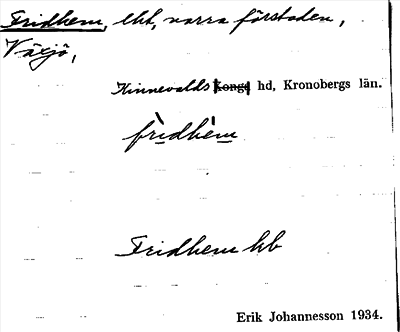 Fridhem, lht, norra förstaden,
Växjö,
Kinnevalds Konga hd, Kronobergs län.
frìdhèm
Fridhem hb
Erik Johannesson 1934.